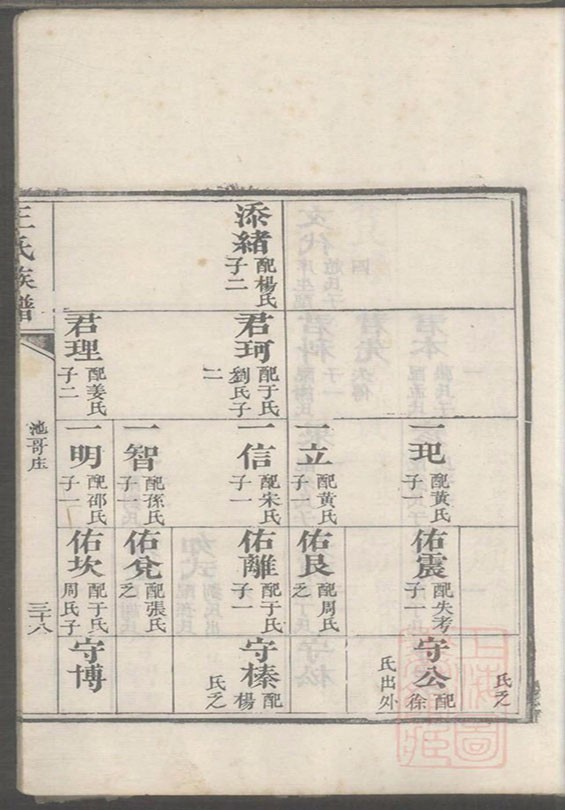 添緒 配楊氏子二
君珂 配于氏劉氏子二
君理 配姜氏子二
一玘 配黄氏子一
一立 配黄氏子一
一信 配宋氏子一
一智 配孫氏子一
一明 配邵氏子一
佑震 配失考子一
佑艮 配周氏乏
佑離 配于氏子一
佑兌 配張氏乏
佑坎 配于氏周氏子
氏乏
守公 配徐氏出外
守榛 配楊氏乏
守博
王氏族譜
池哥庄
三十八